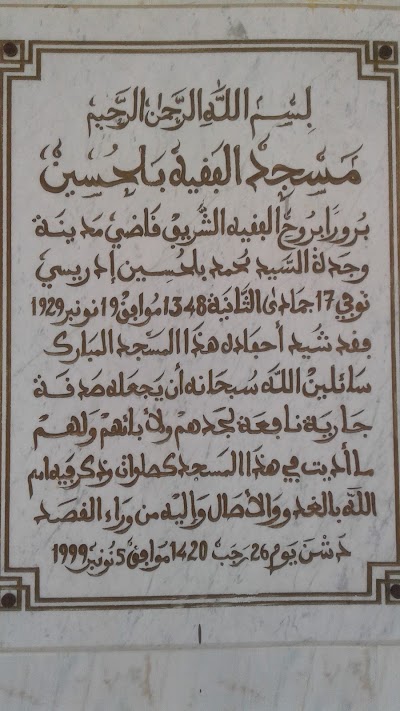 بِسْمِ اللَّهِ الرَّحْمٰنِ الرَّحِيمِ
مَسْجِدُ الفقيه بَالحُسين
بُرورًا بروح الفقيه الشّريف قاضي مدينة
وجدة السّيد محمد بالحسين إدريسي
توفي 17 جمادى الثانية 1348 موافق 19 نونبر 1929
فقد شيد أحفاده هذا المسجد المبارك
سائلين الله سبحانه أن يجعله صدقة
جارية نافعة لجدهم ولآبائهم ولهم
ما أديت في هذا المسجد صلوات وذكر فيه اسم
الله بالغدو والآصال وإليه من وراء القصد
دشن يوم 26 رجب 1420 موافق 5 نونبر 1999